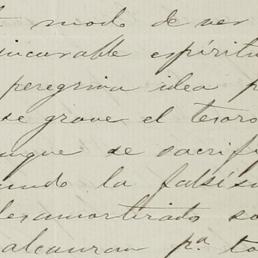 modo de ver
incurable espíritu
peregrina idea p
se grave el tesoro
unque se sacrifi
ando la falsísi
desamortizado so
alcanzan pª to